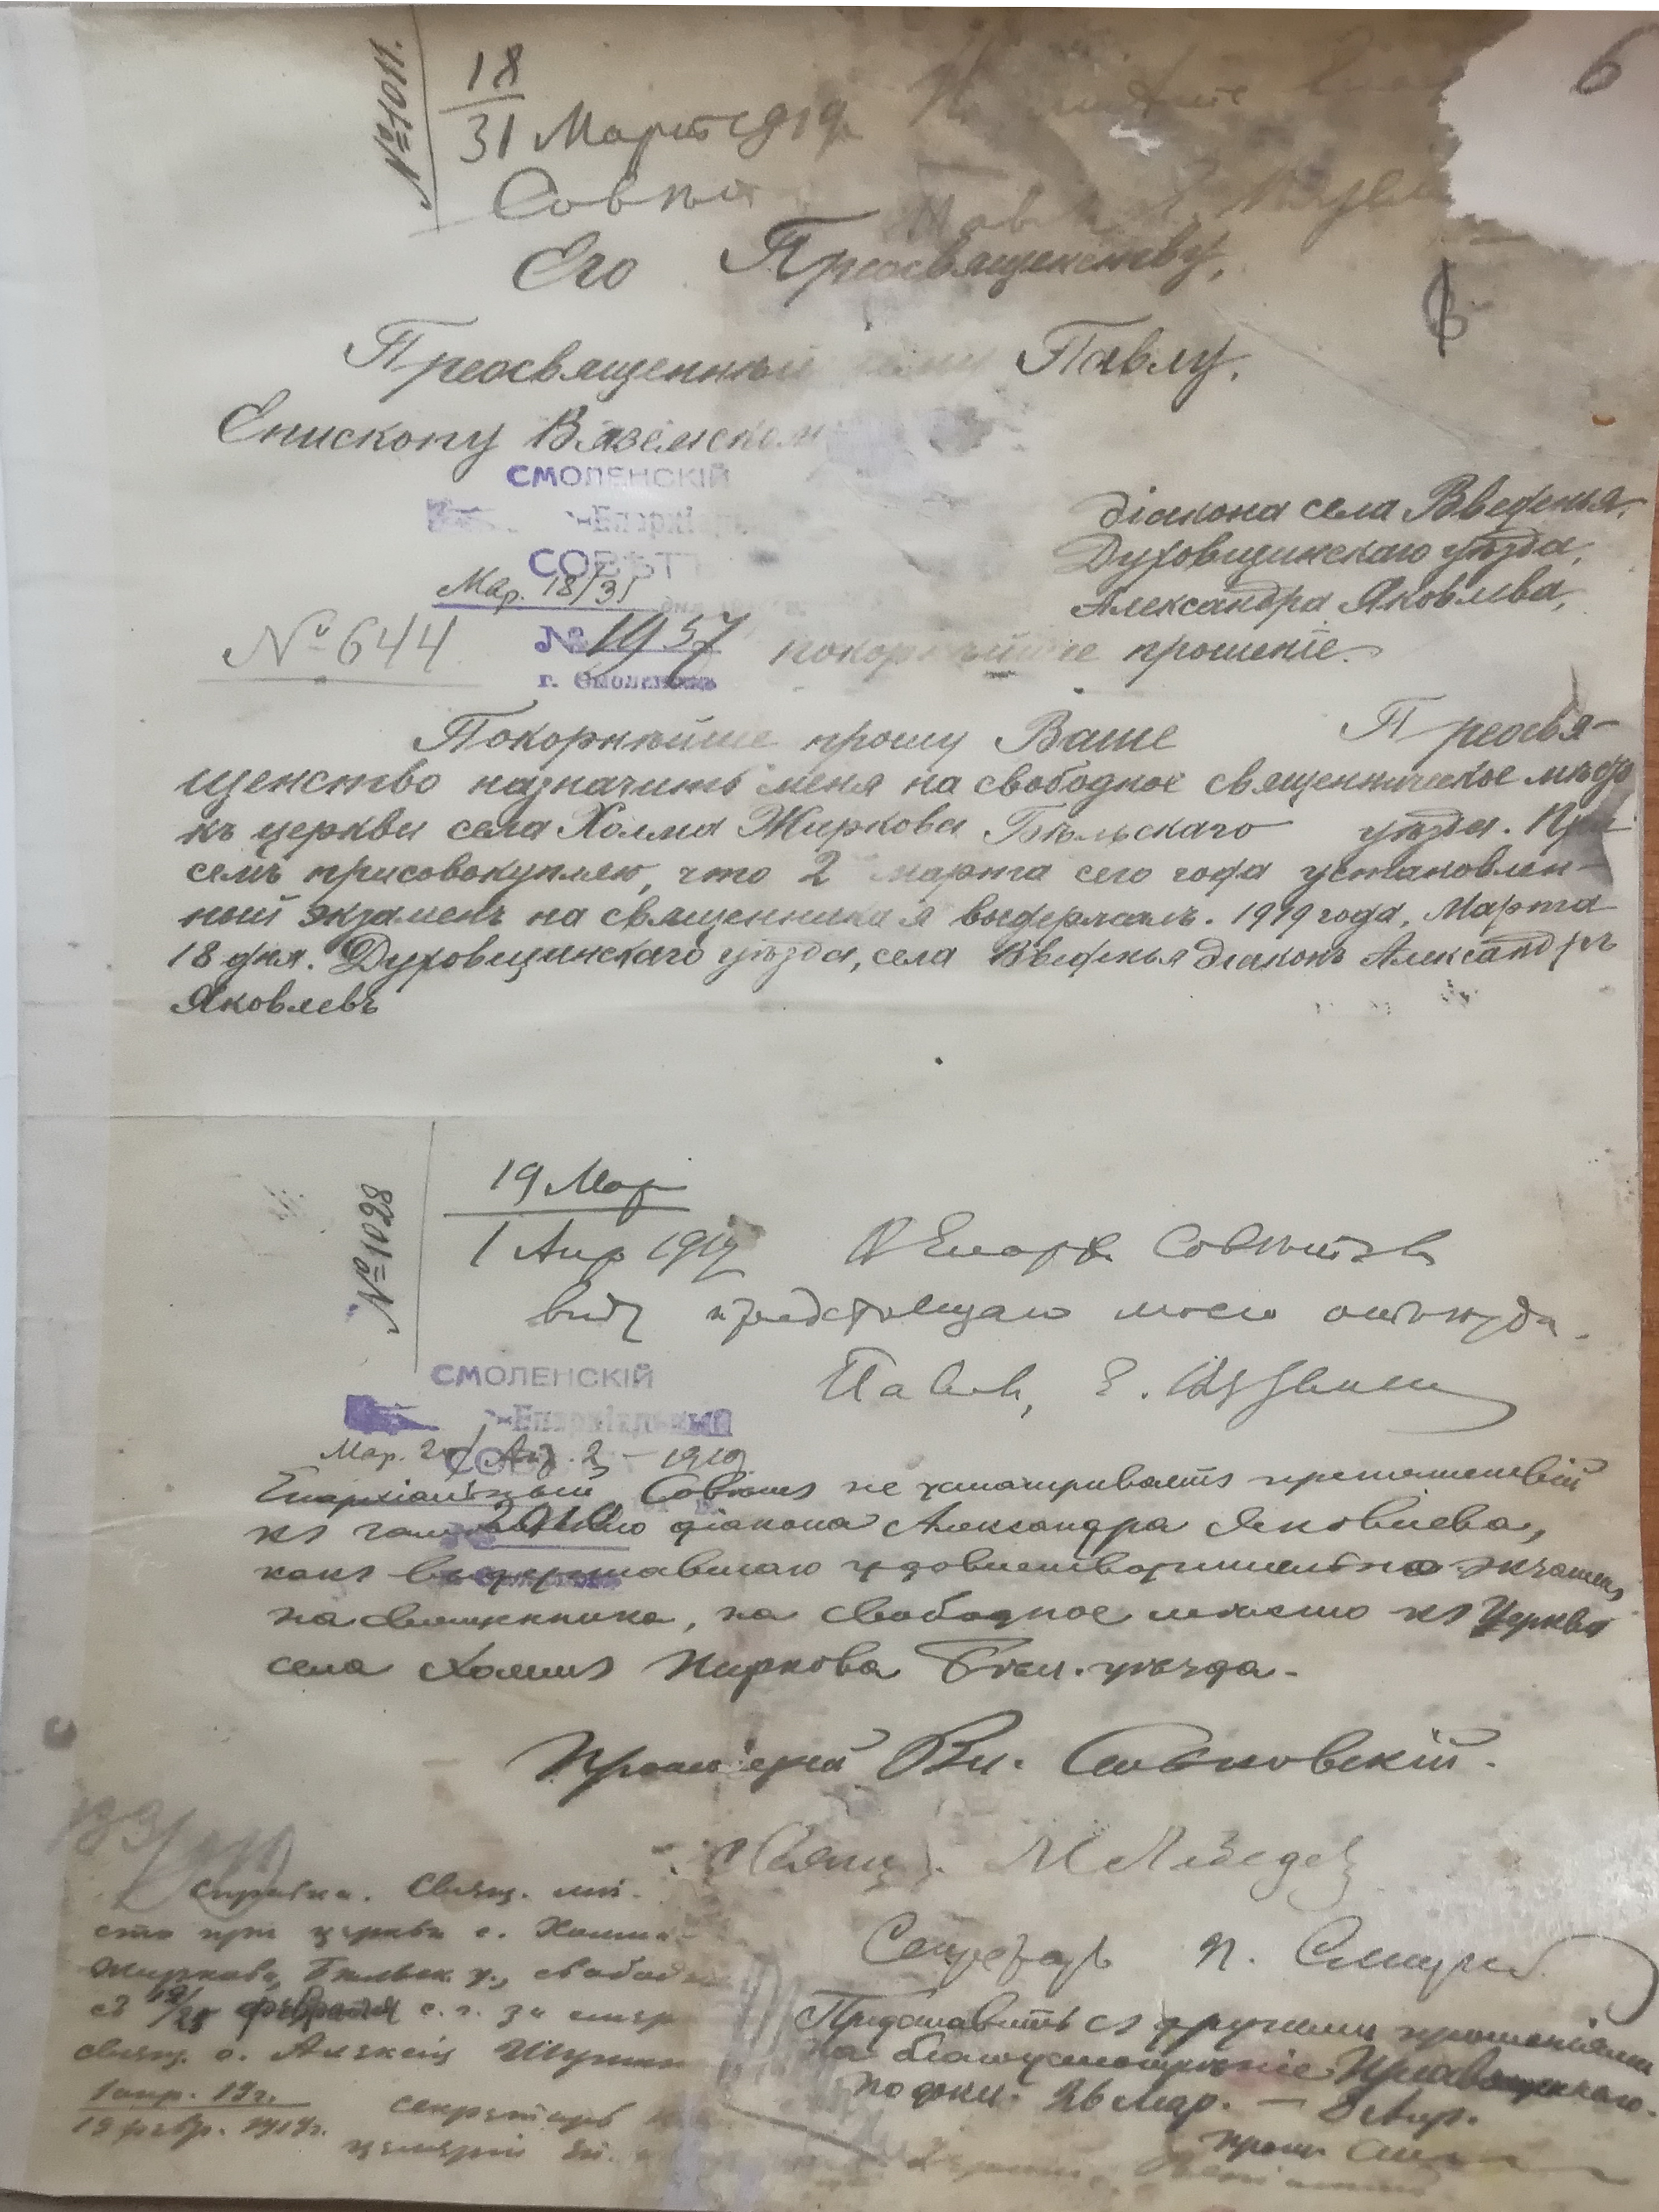 6
№ 1011.
18
31 Марта 1919
Его Преосвященству,
Преосвященнѣй Павлу,
Епископу Вяземском
СМОЛЕНСКІЙ
Епархі
СОВѢТ
Мар. 18/31
№ 1957
г. Смоленскъ
№ 644
діакона села Введенья,
Духовщинскаго уѣзда,
Александра Яковлева,
прошеніе.
Покорнѣйше прошу Ваше Преосвя-
щенство назначить меня на свободное священническое мѣсто
къ церкви села Холма Жиркова Бѣльскаго уѣзда. При
семъ присовокупляю, что 2 марта сего года установлен-
ный экзаменъ на священника я выдержалъ. 1919 года, Марта
18 дня. Духовщинскаго уѣзда, села Введенья діаконъ Александръ
Яковлевъ
№ 1028
19 Мар
1 Апр 1919 Совѣтъ
виду предстоящаго моего отъѣзда.
Павел, Е.
СМОЛЕНСКІЙ
Епархіальный
Мар. 20/Апр. 2 - 1919
Епархіальный Совѣтъ не усматриваетъ препятствій
2010
къ діакона Александра Яковлева,
какъ выдержавшаго удовлетворительно экзаменъ
на священника, на свободное мѣсто къ церкви
села Холмъ Жиркова Бѣл. уѣзда.
Протоіерей Вл.
Свящ. М Лебедев
Секретарь П.
Справка. Свящ. мѣ-
сто при церкви с. Холма-
Жиркова, Бѣльск. у., свобод
съ февраля с. г. за смер
свящ. о. Алексѣя
1 апр. 19 г.
19 г.
Секретарь
Представить съ другими прошеніями
на благоусмотрѣніе
26 Мар. — 8 Апр.